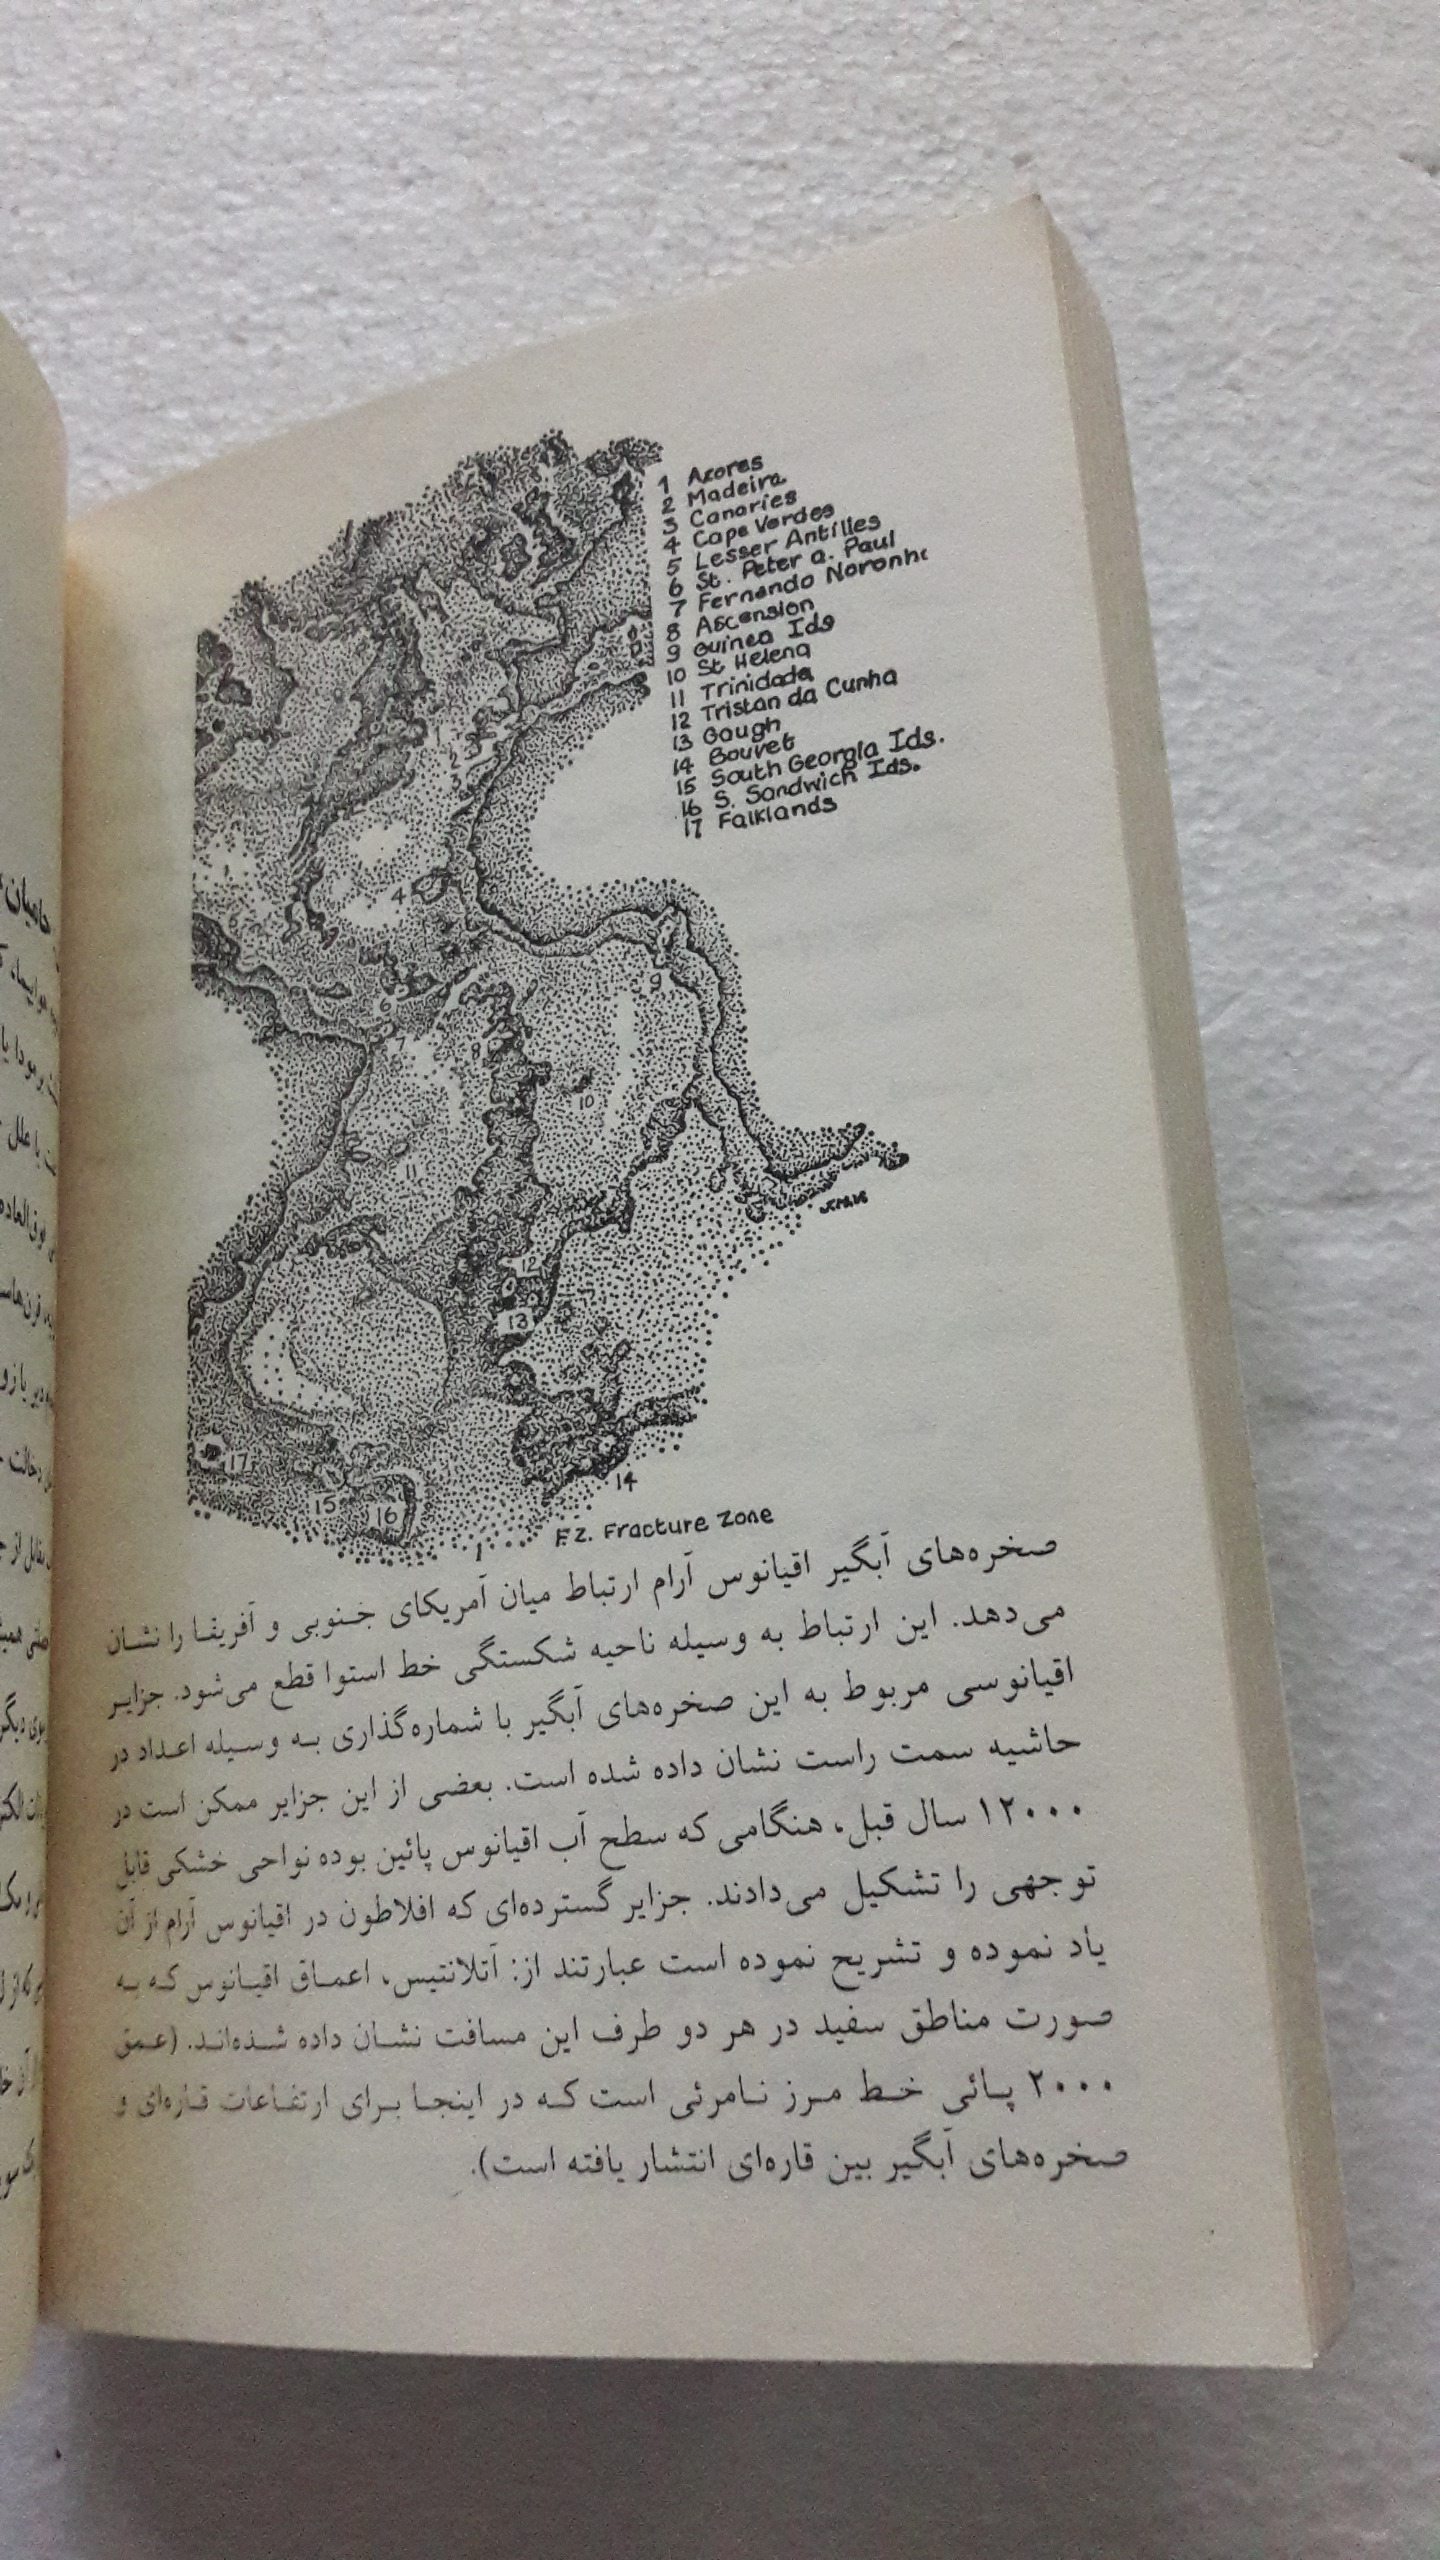 1 Azores
2 Madeira
3 Canaries
4 Cape Verdes
5 Lesser Antilles
6 St. Peter a. Paul
7 Fernando Noronh
8 Ascension
9 Guinea Ids
10 St Helena
11 Trinidada
12 Tristan da Cunha
13 Gough
14 Bouvet
15 South Georgia Ids.
16 S. Sandwich Ids.
17 Falklands
1
2
3
4
6
7
8
9
10
11
12
13
14
15
16
17
F.Z. Fracture Zone
صخره‌های آبگیر اقیانوس آرام ارتباط میان آمریکای جنوبی و آفریقا را نشان
می‌دهد. این ارتباط به وسیله ناحیه شکستگی خط استوا قطع می‌شود. جزایر
اقیانوسی مربوط به این صخره‌های آبگیر با شماره‌گذاری به وسیله اعداد در
حاشیه سمت راست نشان داده شده است. بعضی از این جزایر ممکن است در
۱۲۰۰۰ سال قبل، هنگامی که سطح آب اقیانوس پائین بوده نواحی خشکی قابل
توجهی را تشکیل می‌دادند. جزایر گسترده‌ای که افلاطون در اقیانوس آرام از آن
یاد نموده و تشریح نموده است عبارتند از: آتلانتیس، اعماق اقیانوس که به
صورت مناطق سفید در هر دو طرف این مسافت نشان داده شده‌اند. (عمق
۲۰۰۰ پائی خط مرز نامرئی است که در اینجا برای ارتفاعات قاره‌ای و
صخره‌های آبگیر بین قاره‌ای انتشار یافته است).